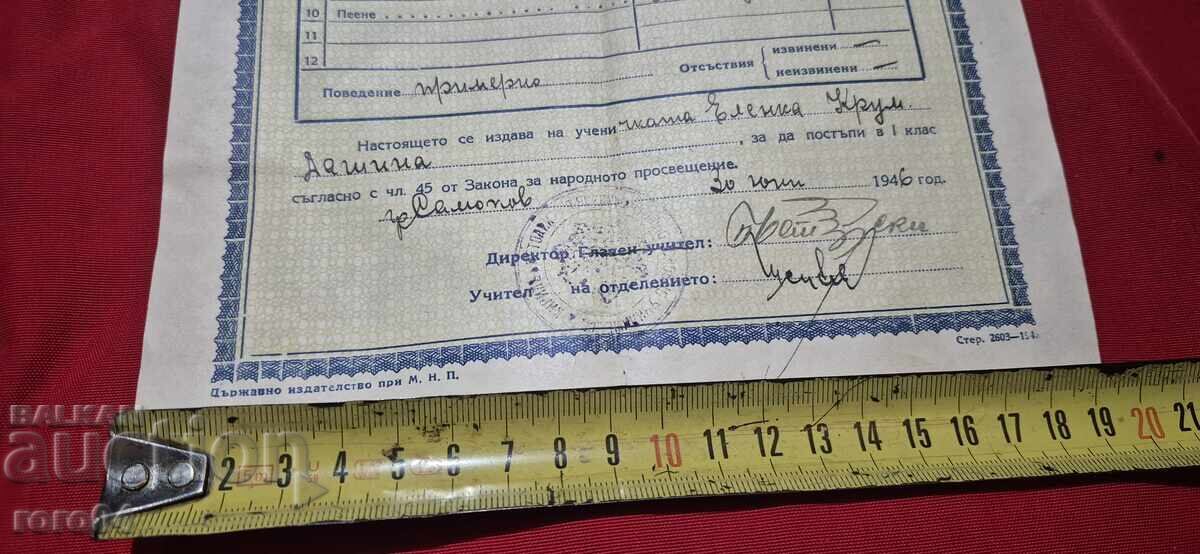 10 Пеене
11
12
Поведение примерно
Отсъствия { извинени —
неизвинени —
Настоящето се издава на учени чката Еленка Крум.
Дашина, за да постъпи в I клас
съгласно с чл. 45 от Закона за народното просвещение.
гр. Самоков, 30 юни 1946 год.
Директор Главен учител:
Учител на отделението:
Държавно издателство при М. Н. П.
Стер. 2603—194
BALKAN
auction
roro94
2 3 4 5 6 7 8 9 10 11 12 13 14 15 16 17 18 19 20 21